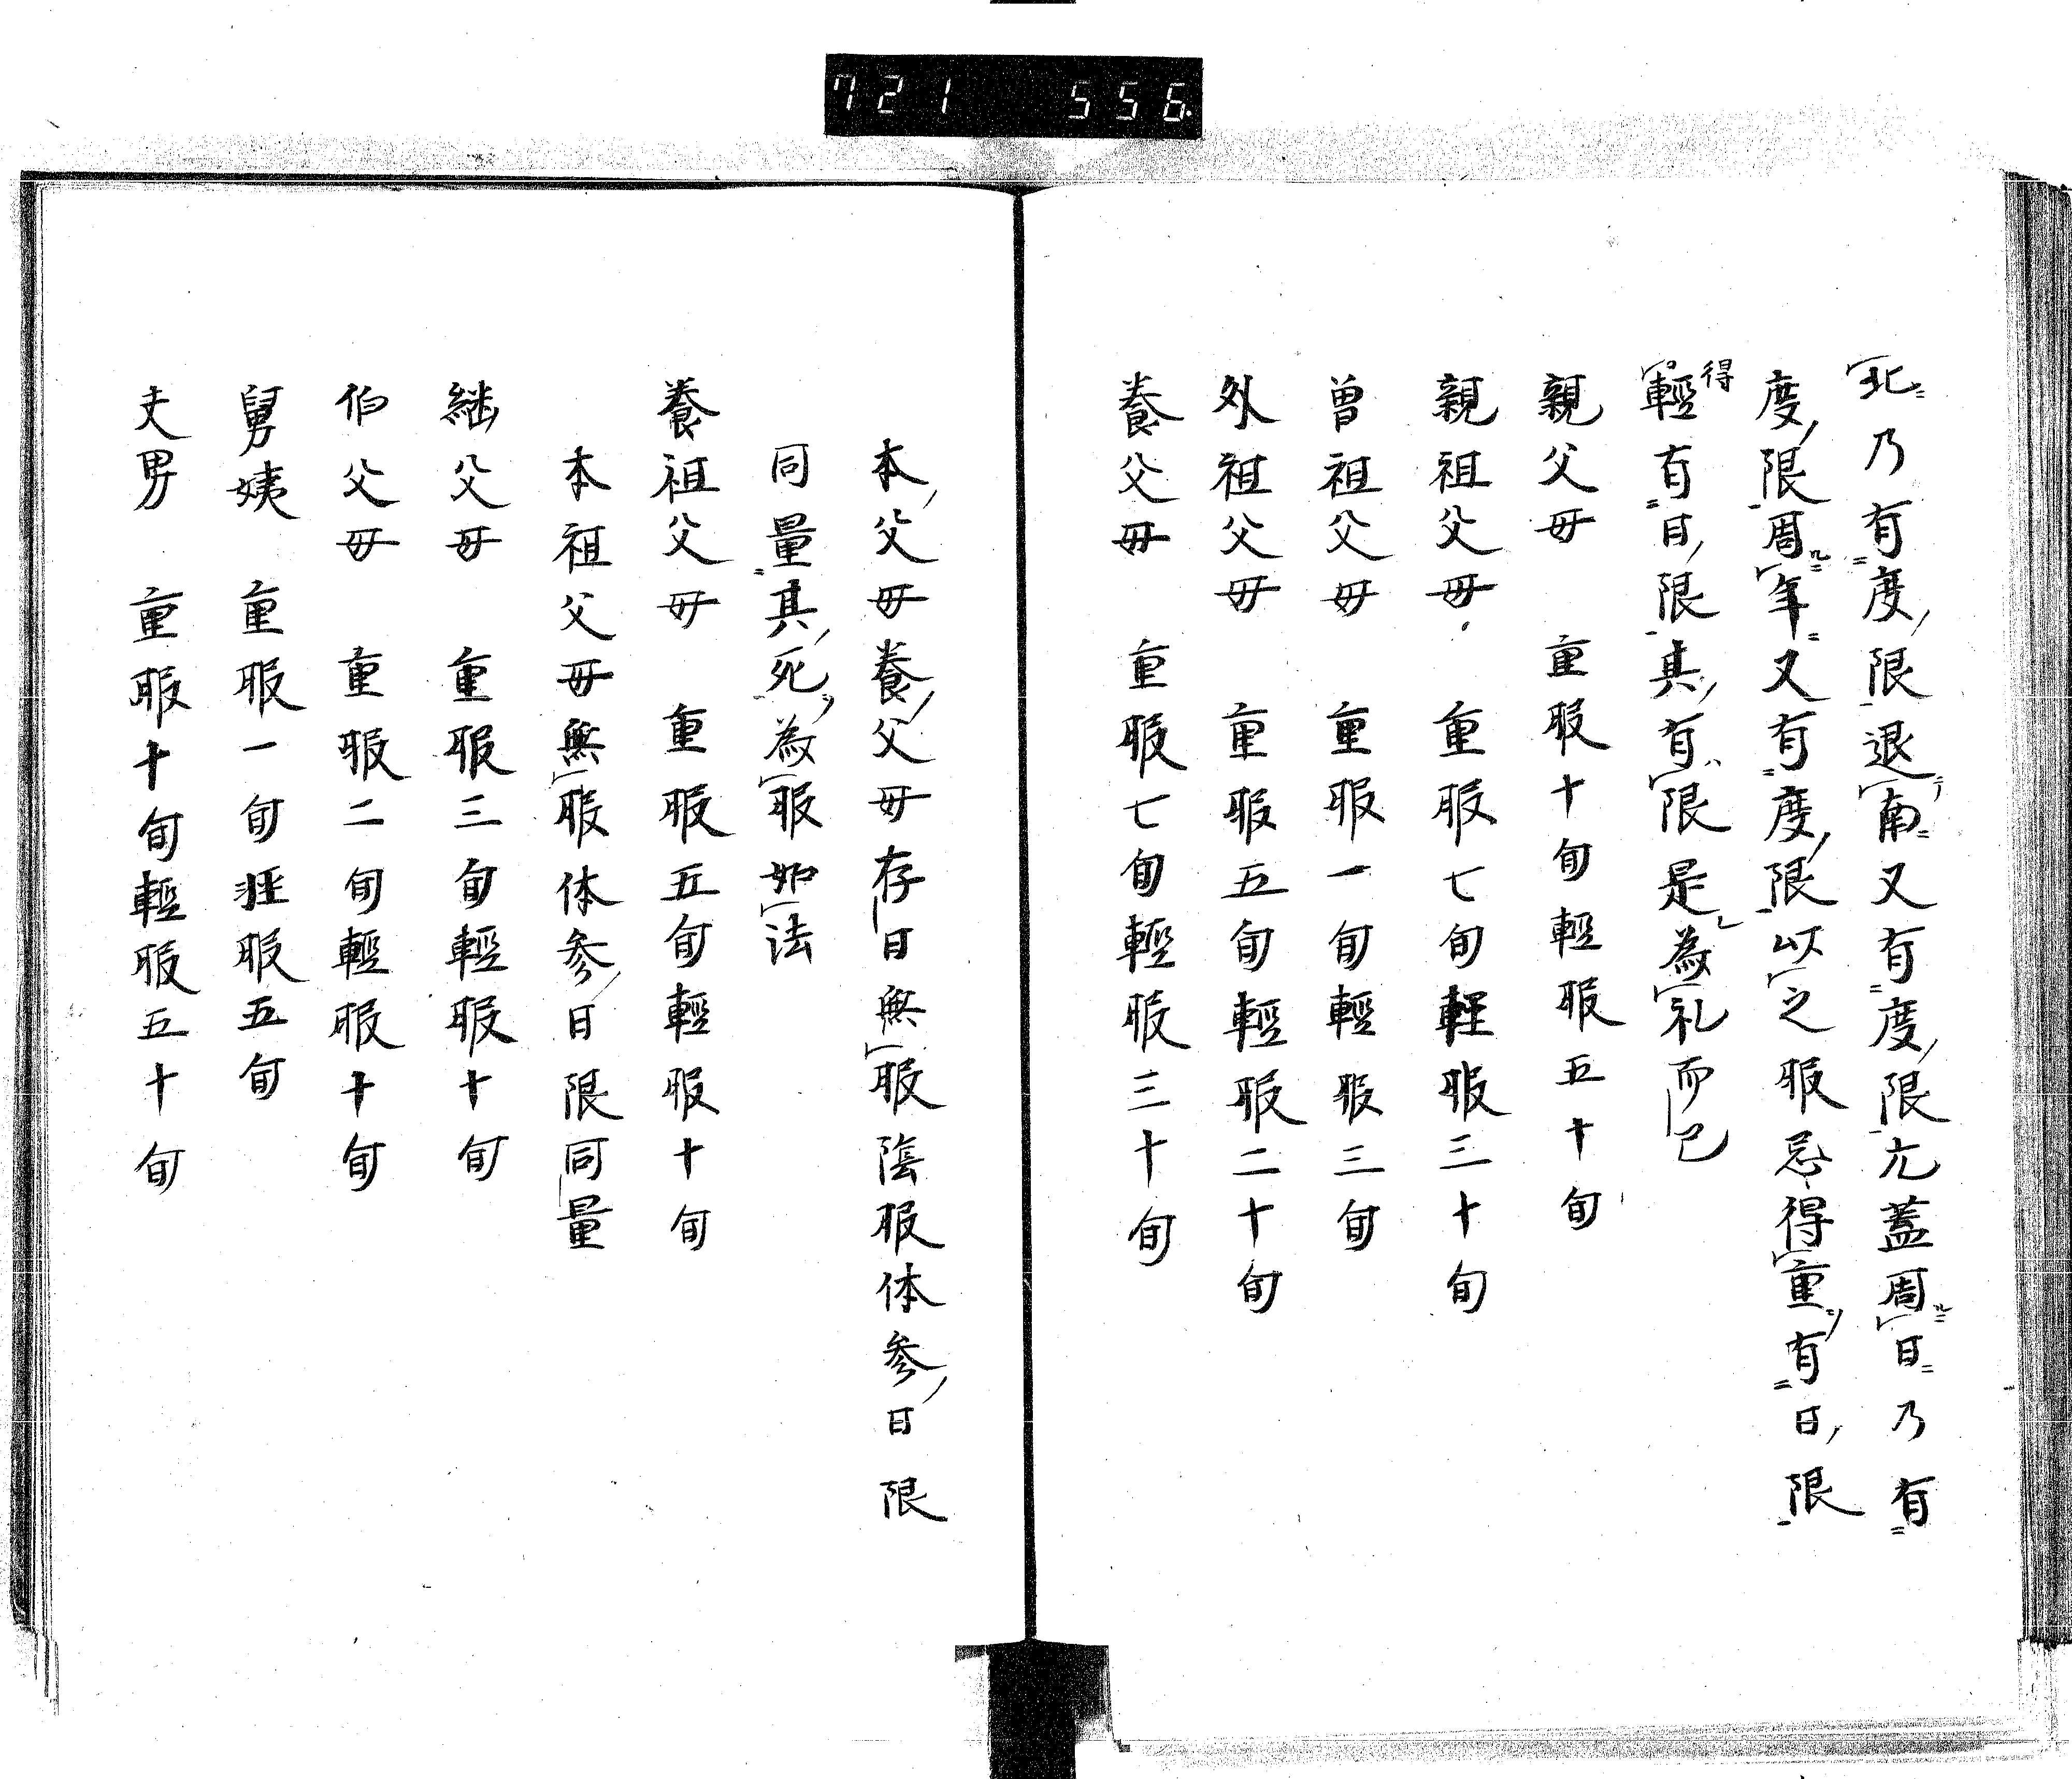 721 556
北乃有度限退南又有度限亢蓋周日乃有
度限周年又有度限以之服忌得重有日限
得
輕有日限其有限是為礼而已
親父母 重服十旬輕服五十旬
親祖父母 重服七旬輕服三十旬
曽祖父母 重服一旬輕服三旬
外祖父母 重服五旬輕服二十旬
養父母 重服七旬輕服三十旬
本父母養父母存日無服陰服体参日限
同量其死為服如法
養祖父母 重服五旬輕服十旬
本祖父母無服体参日限同量
継父母 重服三旬輕服十旬
伯父母 重服二旬輕服十旬
舅姨 重服一旬輕服五旬
夫男 重服十旬輕服五十旬